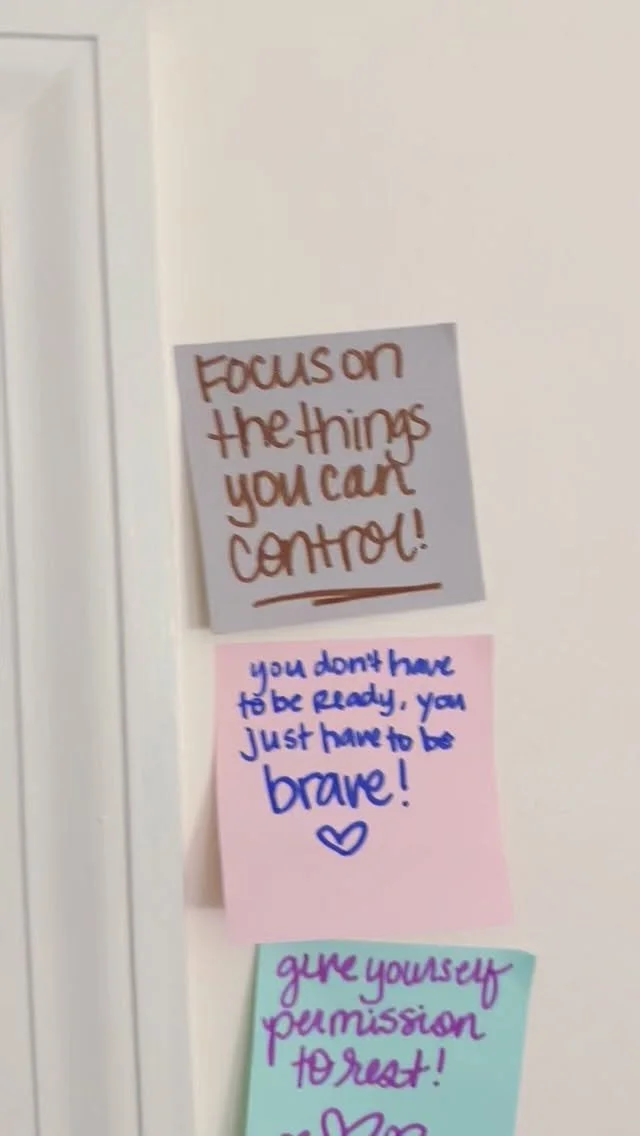 Focus on
the things
you can
control!
you don't have
to be Ready, you
just have to be
brave!
give yourself
permission
to rest!